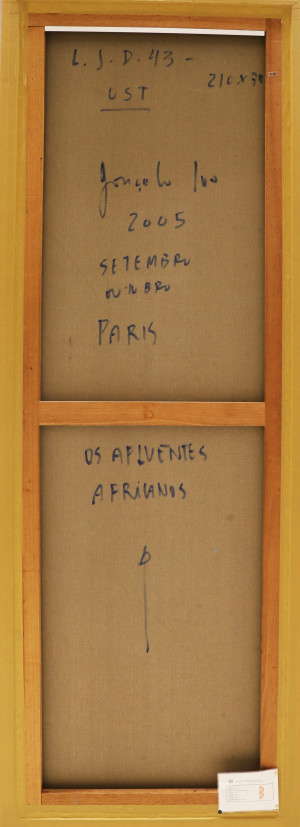 L. J. D. 43 -
UST
Gonçalo Ivo
2005
SETEMBRO
OUTUBRO
PARIS
OS AFLUENTES
AFRICANOS